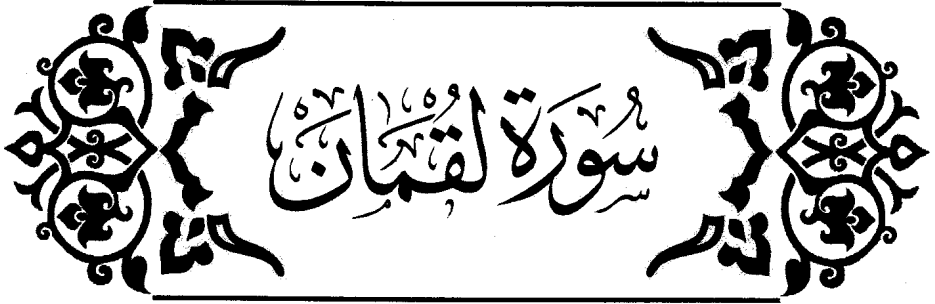 سُورَة لُقْمَان